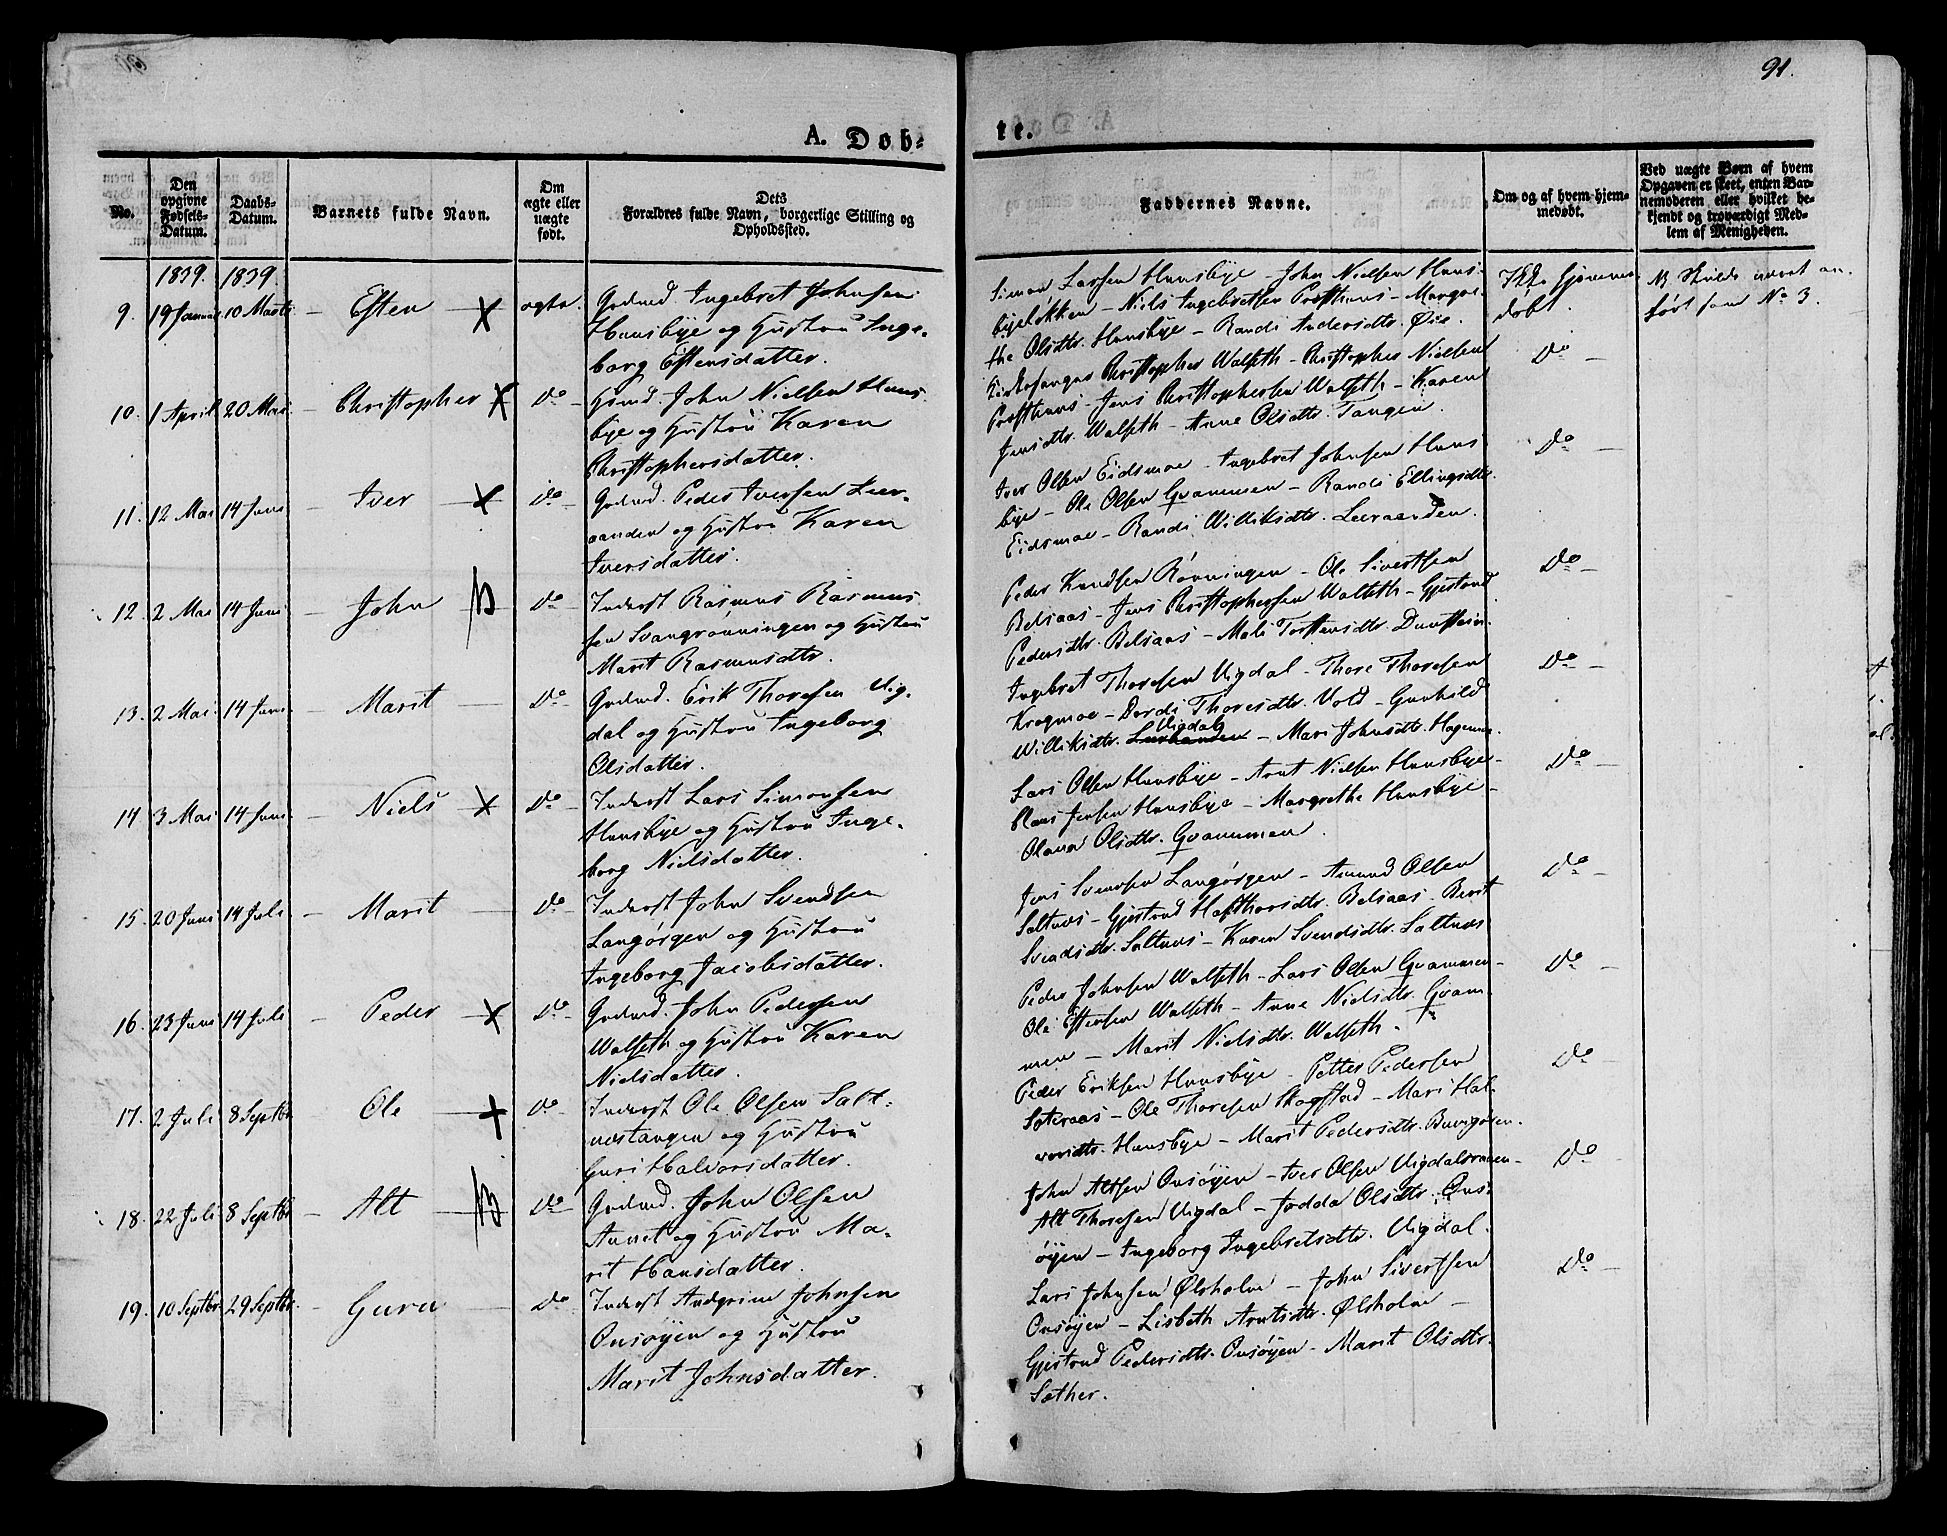 91.
A. Døb-
te.
No.
Den opgivne Fødsels-Datum.
Daabs-Datum.
Barnets fulde Navn.
Om ægte eller uægte født.
Dets Forældres fulde Navn, borgerlige Stilling og Opholdssted.
Faddernes Navne.
Om og af hvem hjem-medøbt.
Ved uægte Børn af hvem Opgaven er skeet, enten Bar-nemoderen eller hvilket be-kjendt og troværdigt Med-lem af Menigheden.
1839. 1839.
9. 19 Januar 10 Marts – Esten X ægte. Gadmd. Ingebret Johnsen
Hansbye og Hustru Inge-
borg Estensdatter.
Simon Larsen Hansbye – John Nielsen Hans-
byeløkken – Niels Ingebretsen Posthuus – Margre-
the Olsdtr. Hansbye – Randi Andersdtr. Øie.
Ikke hjemme-
døbt.
NB Skulde været an-
ført som No 3.
10. 1 April 20 Mai – Christopher X Do – Huusmd. John Nielsen Hans-
bye og Hustru Karen
Christophersdatter.
Kirkesanger Christopher Walseth – Christopher Nielsen
Posthuus – Jens Christophersen Walseth – Karen
Jensdtr. Walseth – Anne Olsdtr. Tangen.
Do –
11. 12 Mai 14 Juni – Iver X Do – Gadmd. Peder Iversen Leer-
aanden og Hustru Karen
Iversdatter.
Iver Olsen Eidsmoe – Ingebret Johnsen Hans-
bye – Ole Olsen Gvammen – Randi Ellingsdtr.
Eidsmoe – Randi Williksdtr. Leeraanden.
Do –
12. 2 Mai 14 Juni – John B Do – Inderst Rasmus Rasmus-
sen Svangrønningen og Hustru
Marit Rasmusdtr.
Peder Knudsen Rønningen – Ole Sivertsen
Belsaas – Jens Christophersen Walseth – Gjertrud
Pedersdtr. Belsaas – Mali Torstensdtr. Duustein.
Do –
13. 2 Mai 14 Juni – Marit Do – Gadmd. Erik Thoresen Vig-
dal og Hustru Ingeborg
Olsdatter.
Ingebret Thoresen Vigdal – Thore Thoresen
Krogmoe – Dordi Thoresdtr. Vold – Gunhild
Williksdtr. Leeraanden Vigdal – Mari Johnsdtr. Hagenmo.
Do –
14 3 Mai 14 Juni – Niels X Do – Inderst Lars Simonsen
Hansbye og Hustru Inge-
borg Nielsdatter.
Lars Olsen Hansbye – Arnt Nielsen Hansbye –
Claus Jensen Hansbye – Margrethe Hansbye –
Olava Olsdtr. Gvammen.
Do –
15. 20 Juni 14 Juli – Marit Do – Inderst John Svendsen
Langørgen og Hustru
Ingeborg Jacobsdatter.
Jens Svendsen Langørgen – Amund Olsen
Saltnes – Gjertrud Hafthorsdtr. Belsaas – Berit
Svendsdtr. Saltnes – Karen Svendsdtr. Saltnes
Do –
16. 23 Juni 14 Juli – Peder X Do – Gadmd. John Pedersen
Walseth og Hustru Karen
Nielsdatter.
Peder Johnsen Walseth – Lars Olsen Gvammen –
Ole Estensen Walseth – Anne Nielsdtr. Gvam-
men – Marit Nielsdtr. Walseth.
Do –
17. 2 Juli 8 Septbr – Ole + Do – Inderst Ole Olsen Salt-
nestangen og Hustru
Guri Halvorsdatter.
Peder Eriksen Hansbye – Petter Pedersen
Søteraas – Ole Thoresen Skogstad – Mari Hal-
vorsdtr. Hansbye – Marit Pedersdtr.
Do –
18. 22 Juli 8 Septbr – Alt B Do – Gadmd. John Olsen
Aunet og Hustru Ma-
rit Hansdatter.
John Altsen Onsøyen – Iver Olsen
Alt Thoresen Vigdal – Jodda Olsdtr. Ons-
øyen – Ingeborg Ingebretsdtr. Vigdal.
Do –
19. 10 Septbr 29 Septbr – Guru Do – Inderst Andgrim Johnsen
Onsøyen og Hustru
Marit Johnsdatter.
Lars Johnsen Ølsholm – John Sivertsen
Onsøyen – Lisbeth Arntsdtr. Ølsholm –
Gjertrud Pedersdtr. Onsøyen – Marit Olsdtr.
Sæther.
Do –